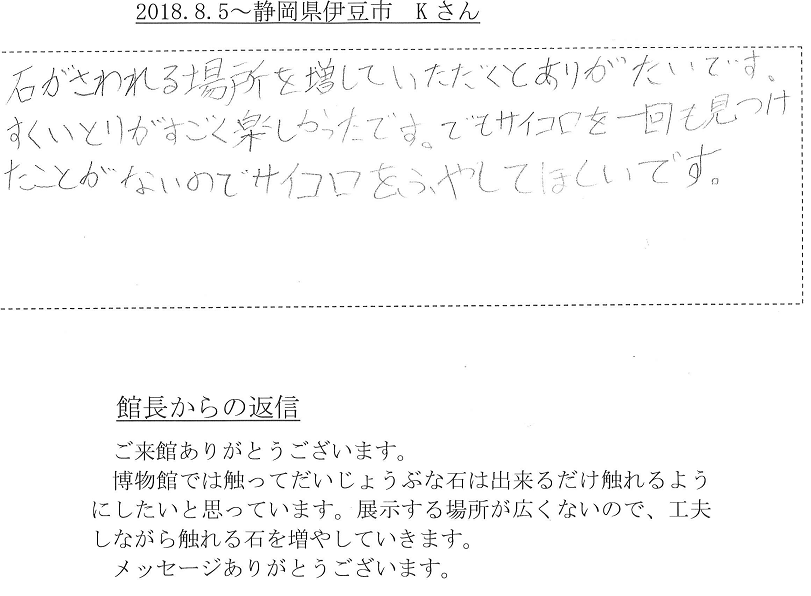 2018.8.5～静岡県伊豆市　Kさん
石がさわれる場所を増していただくとありがたいです。
すくいとりがすごく楽しかったです。でもサイコロを一回も見つけ
たことがないのでサイコロをふやしてほしいです。
館長からの返信
ご来館ありがとうございます。
博物館では触ってだいじょうぶな石は出来るだけ触れるよう
にしたいと思っています。展示する場所が広くないので、工夫
しながら触れる石を増やしていきます。
メッセージありがとうございます。